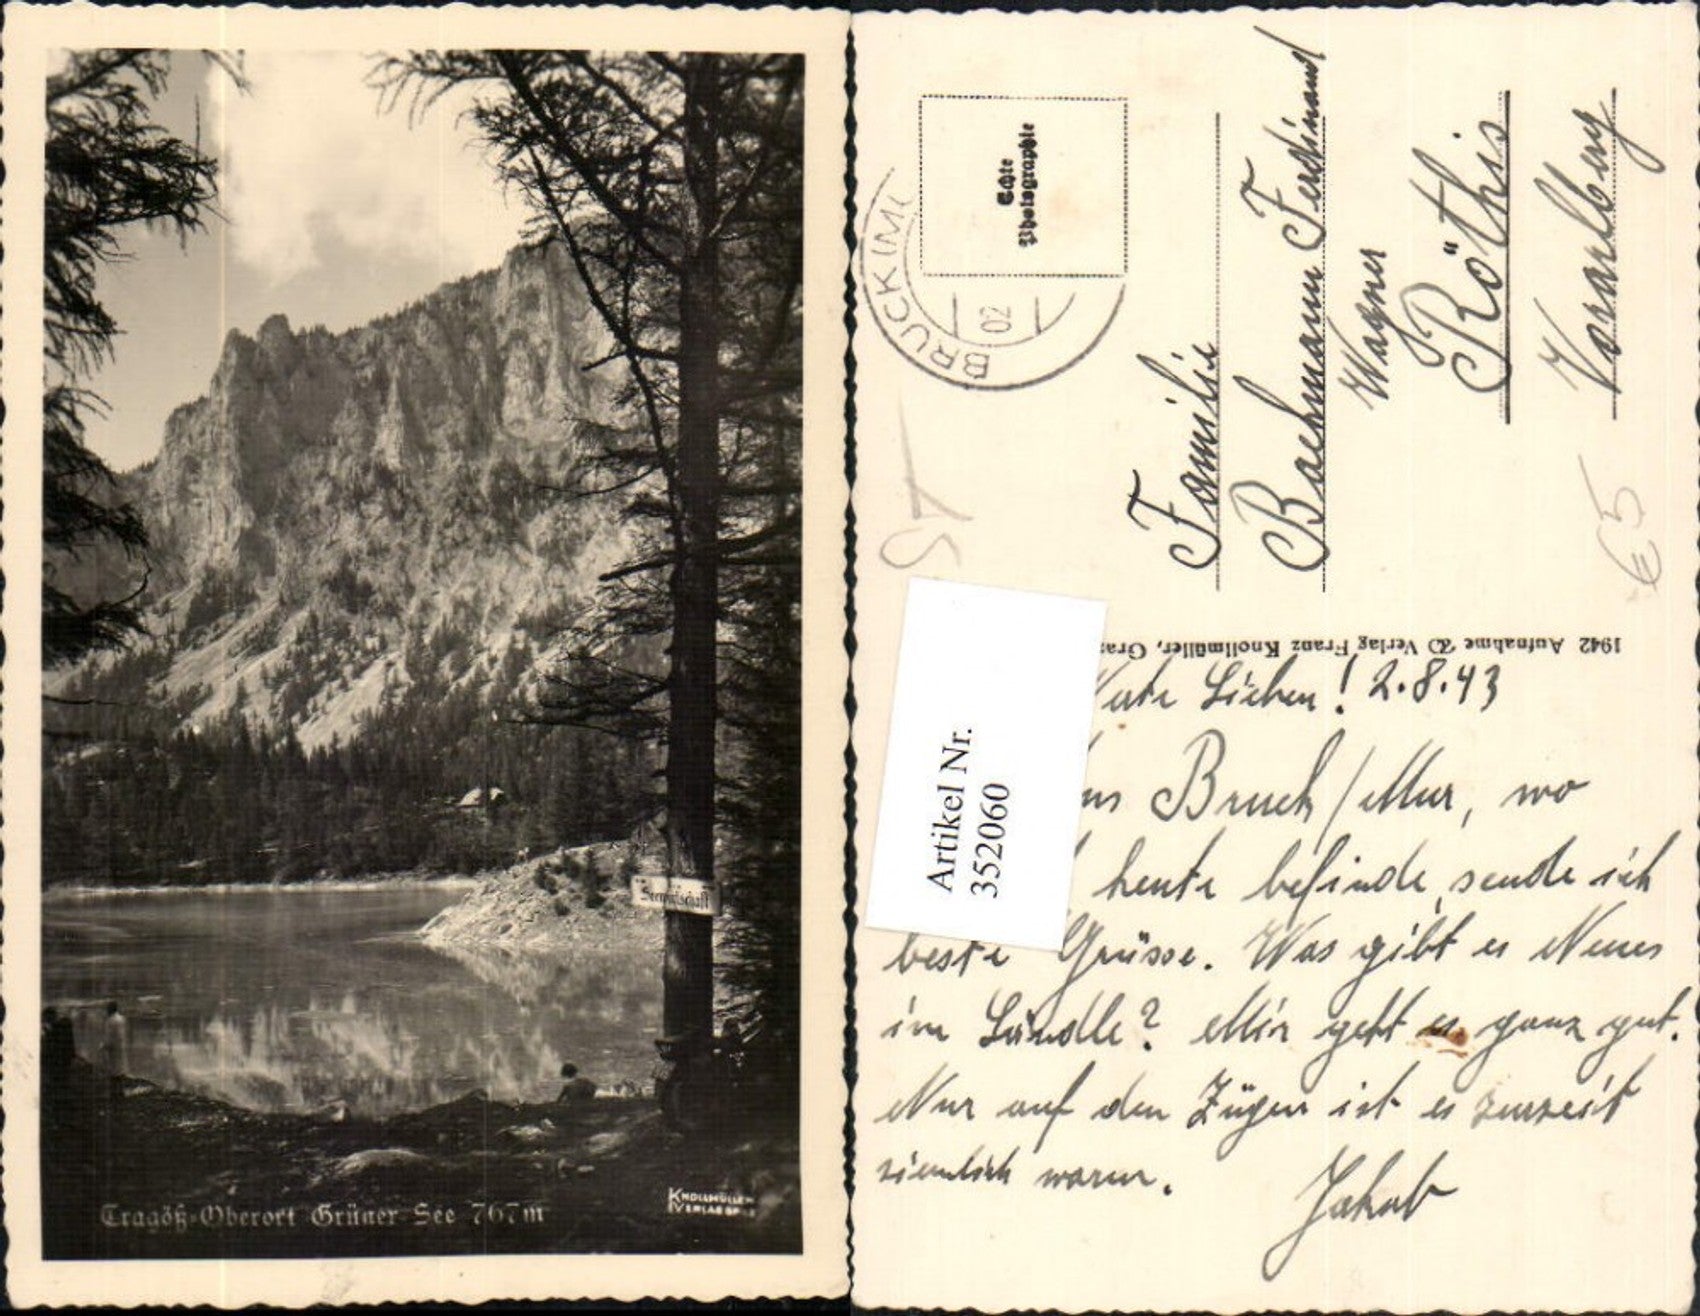 Seewirtschaft
Tragöß-Oberort Grüner See 767m
KNOLLMÜLLER
VERLAG GRAZ
BRUCK
02
Echte
Photographie
Familie
Bachmann Ferdinand
Wagner
Röthis
Vorarlberg
ST
€5
1942 Aufnahme & Verlag Franz Knollmüller, Graz
Artikel Nr.
3520 60
Lieben! 2.8.43
Bruck/Mur, wo
heute befinde, sende ich
beste Grüsse. Was gibt es Neues
im Ländle? Mir geht es ganz gut.
Nur auf den Zügen ist es zurzeit
ziemlich warm.
Jakob